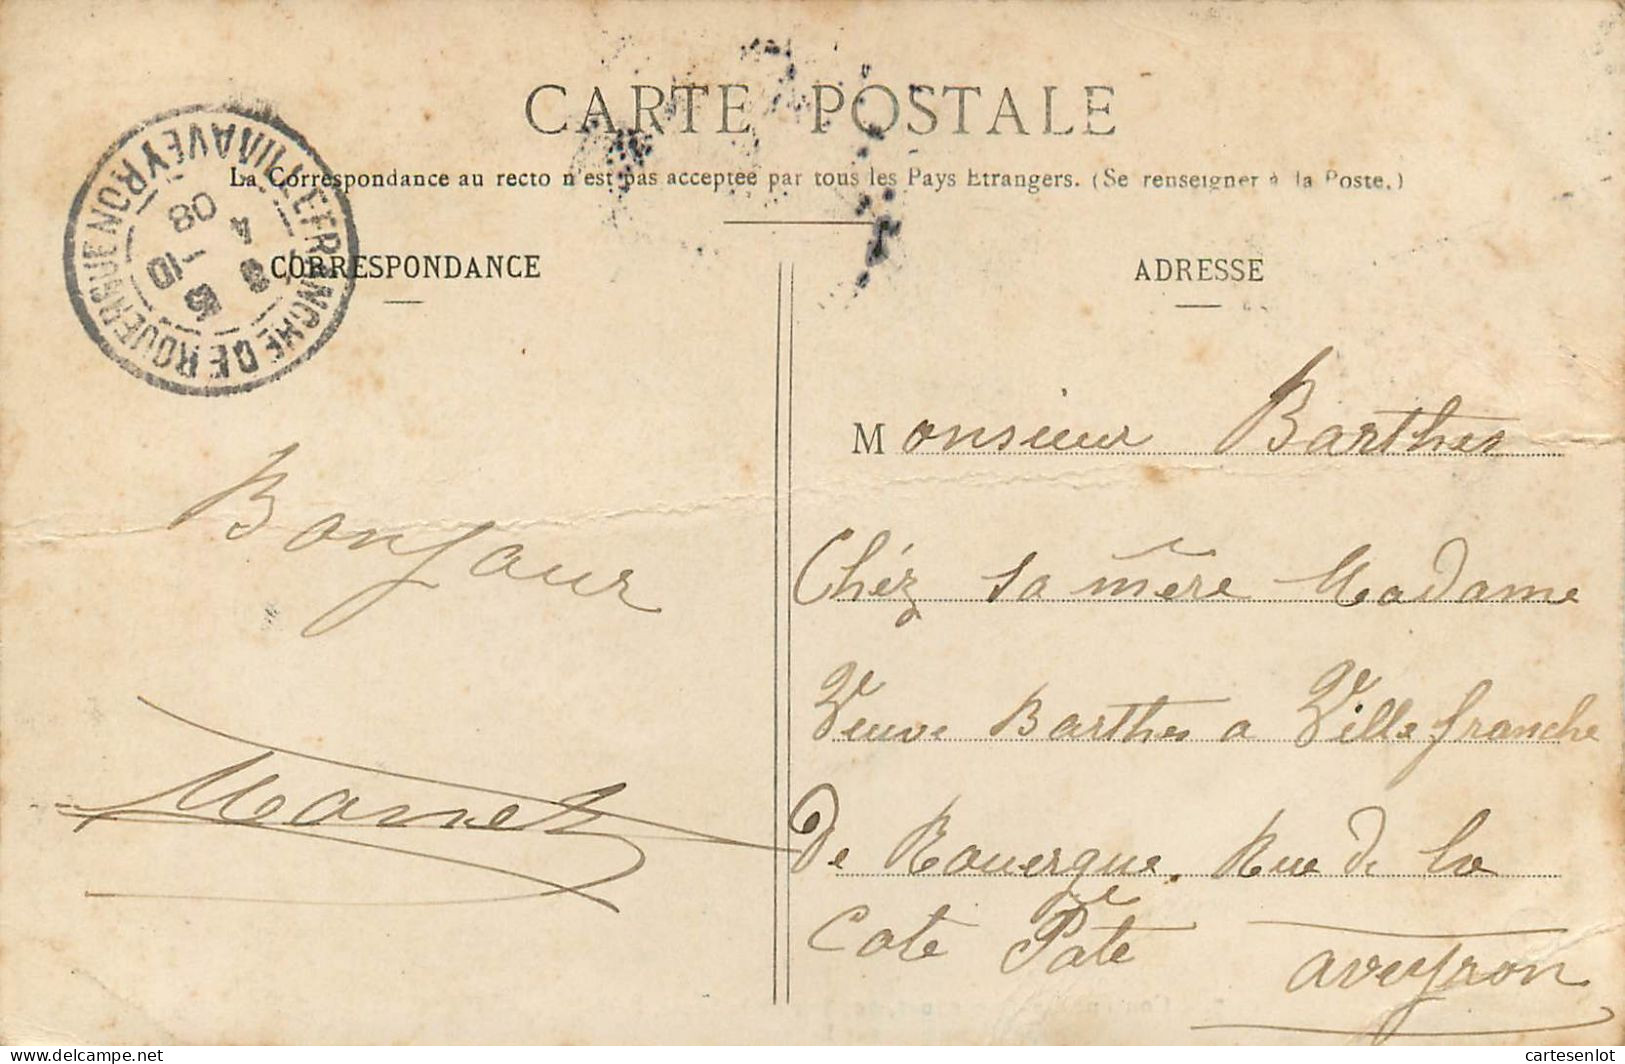 CARTE POSTALE
La Correspondance au recto n'est pas acceptée par tous les Pays Etrangers. (Se renseigner à la Poste.)
VILLEFRANCHE DE ROUERGUE
AVEYRON
08
CORRESPONDANCE
ADRESSE
Bonjour
Monsieur Barthes
Chéz sa mère Madame
Veuve Barthes a Villefranche
De Rouergue. Rue de la
Cote Pate
aveyron
cartesenlot